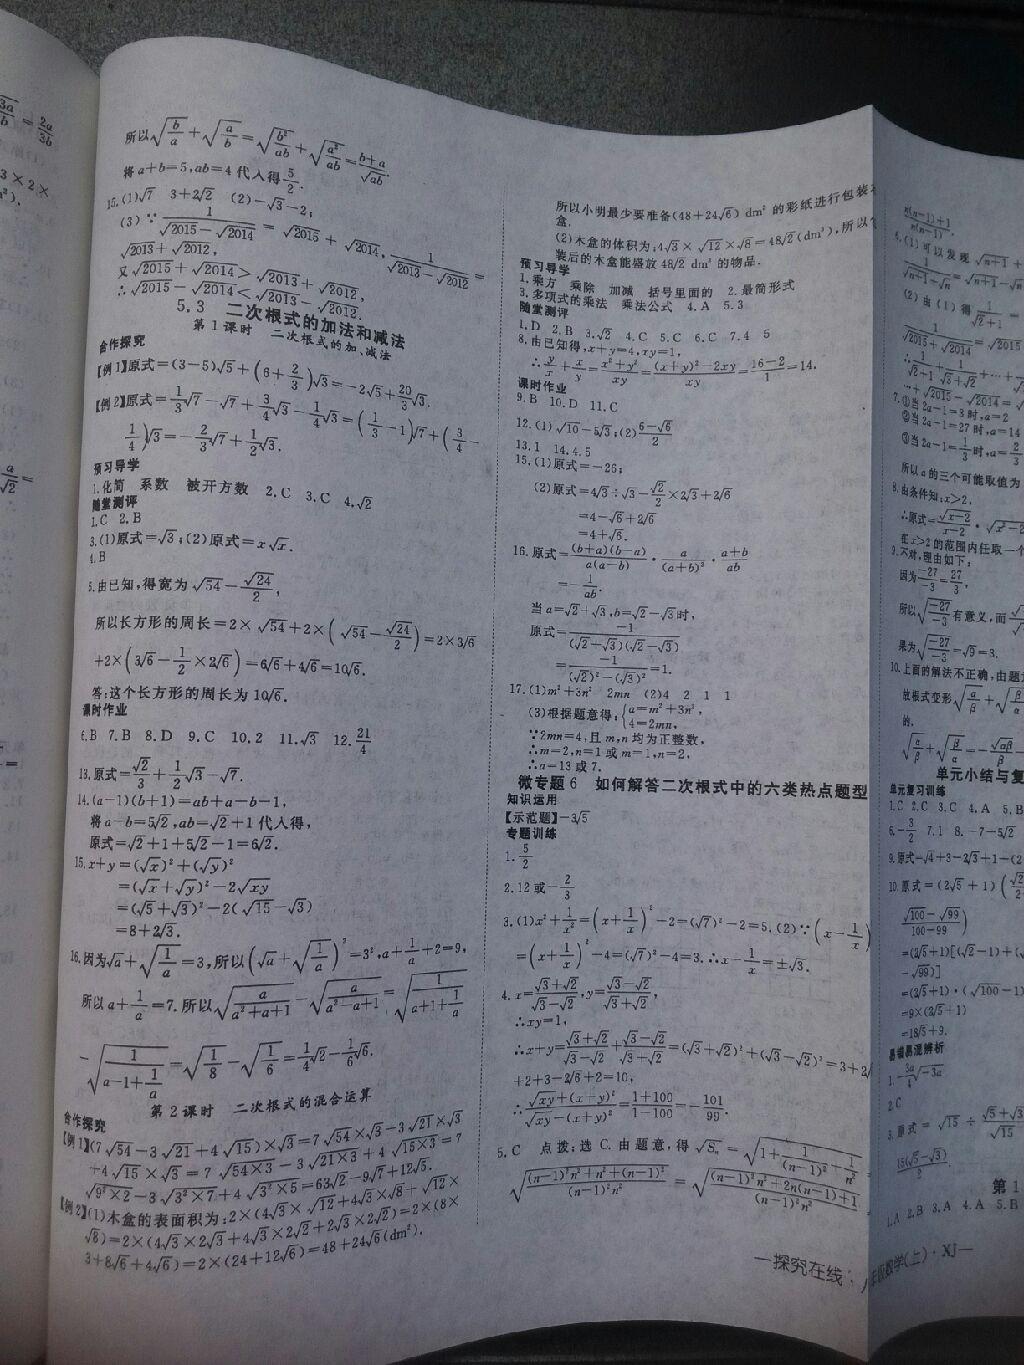 所以√(b/a)+√(a/b)=√(b²/ab)+√(a²/ab)=(b+a)/√ab.
将a+b=5,ab=4代入得5/2.
15.(1)√7 3+2√2 (2)-√3-2;
(3)∵1/(√2015-√2014)=√2015+√2014,1/(√2013-√2012)=
√2013+√2012,
又√2015+√2014>√2013+√2012,
∴√2015-√2014<√2013-√2012.
5.3 二次根式的加法和减法
第1课时 二次根式的加、减法
合作探究
【例1】原式=(3-5)√5+(6+2/3)√3=-2√5+20/3√3.
【例2】原式=1/3√7-√7+3/4√3-1/4√3=(1/3-1)√7+(3/4-
1/4)√3=-2/3√7+1/2√3.
预习导学
1.化简 系数 被开方数 2.C 3.C 4.√2
随堂测评
1.C 2.B
3.(1)原式=√3;(2)原式=x√x.
4.B
5.由已知,得宽为√54-√24/2,
所以长方形的周长=2×√54+2×(√54-√24/2)=2×3√6
+2×(3√6-1/2×2√6)=6√6+4√6=10√6.
答:这个长方形的周长为10√6.
课时作业
6.B 7.B 8.D 9.C 10.2 11.√3 12.21/4
13.原式=√2/3+1/2√3-√7.
14.(a-1)(b+1)=ab+a-b-1,
将a-b=5√2,ab=√2+1代入得,
原式=√2+1+5√2-1=6√2.
15.x+y=(√x)²+(√y)²
=(√x+√y)²-2√xy
=(√5+√3)²-2(√15-√3)
=8+2√3.
16.因为√a+√(1/a)=3,所以(√a+√(1/a))²=3²,a+1/a+2=9,
所以a+1/a=7.所以√(a/(a²+a+1))-√(a/(a²-a+1))=√(1/(a+1+1/a))
-√(1/(a-1+1/a))=√(1/8)-√(1/6)=1/4√2-1/6√6.
第2课时 二次根式的混合运算
合作探究
【例1】(7√54-3√21+4√15)×√3=7√54×√3-3√21×√3
+4√15×√3=7√54×3-3√21×3+4√15×3=7
√9²×2-3√3²×7+4√3²×5=63√2-9√7+12√5.
【例2】(1)木盒的表面积为:2×(4√3×√12+4√3×√8+√12×
√8)=2×(4√3×2√3+4√3×2√2+2√3×2√2)=2×(8×
3+8√6+4√6)=2×(24+12√6)=48+24√6(dm²).
所以小明最少要准备(48+24√6)dm²的彩纸进行包装
盒.
(2)木盒的体积为:4√3×√12×√8=48√2(dm³),所以
装后的木盒能盛放48√2 dm³的物品.
预习导学
1.乘方 乘除 加减 括号里面的 2.最简形式
3.多项式的乘法 乘法公式 4.A 5.3
随堂测评
1.D 2.B 3.√2 4.C 5.C 6.C 7.4 5
8.由已知得,x+y=4,xy=1,
∴y/x+x/y=(x²+y²)/xy=((x+y)²-2xy)/xy=(16-2)/1=14.
课时作业
9.B 10.D 11.C
12.(1)√10-5√3;(2)(6-√6)/2
13.1 14.4.5
15.(1)原式=-26;
(2)原式=4√3÷√3-√2/2×2√3+2√6
=4-√6+2√6
=4+√6.
16.原式=(b+a)(b-a)/a(a-b)·a/(a+b)²·(a+b)/ab
=-1/ab.
当a=√2+√3,b=√2-√3时,
原式=-1/((√2-√3)(√2-√3))
=-1/((√2)²-(√3)²)=1.
17.(1)m²+3n² 2mn (2)4 2 1 1
(3)根据题意得,{a=m²+3n²,
4=2mn,
∵2mn=4,且m,n均为正整数,
∴m=2,n=1或m=1,n=2,
∴a=13或7.
微专题6 如何解答二次根式中的六类热点题型
知识运用
【示范题】-3√5
专题训练
1.5/2
2.12或-2/3
3.(1)x²+1/x²=(x+1/x)²-2=(√7)²-2=5.(2)∵(x-1/x)
=(x+1/x)²-4=(√7)²-4=3.∴x-1/x=±√3.
4.x=(√3+√2)/(√3-√2),y=(√3-√2)/(√3+√2),
∴xy=1,
∴x+y=(√3+√2)/(√3-√2)+(√3-√2)/(√3+√2)=(√3+√2)²+(√3-√2)²=3+2√
+2+3-2√6+2=10,
∴(√xy+(x+y)²)/(√xy-(x+y)²)=(1+100)/(1-100)=-101/99.
5.C 点拨:选C.由题意,得√Sₙ=√(1+1/(n-1)²+1/n²)=
√(((n-1)²n²+n²+(n-1)²)/((n-1)²n²))=√(((n-1)²n²+2n(n-1)+1)/((n-1)²n²))
—探究在线
年级数学(上)·XJ—
(n(n-1)+1)/(n(n-1)).
6.(1)可以发现√n+1+
1/(√n+1-√n)=√n+1-√n
(2)由(1)得1/(√2+1)=
1/(√2015+√2014)=√2015
∴1/(√2+1)+1/(√3+√2)+…+
…+√2015-√2014=√
7.①当2a-1=3时,a=2
②当2a-1=27时,a=14
③当2a-1=1/3时,a=2/3
所以a的三个可能取值为
8.由条件知:x>2,
∴原式=√x-2/x-2·
在x>2的范围内任取一个
9.不对,理由如下:
因为-27/-3=27/3,
所以√(-27/-3)有意义,而√
果为√(-27/-3)=√9=3.
10.上面的解法不正确,由题
故根式变形√(α/β)+√(β/α)
的.
√(α/β)+√(β/α)=-√αβ/β
单元小结与复
单元复习训练
1.C 2.C 3.C 4.A 5.B
6.-3/2 7.1 8.-7-5√2
9.原式=√4+3-2√3+1-(2
10.原式=(2√5+1)(√2
(√100-√99)/(100-99))
=(2√5+1)[(√2-1)+(√
-√99)]
=(2√5+1)·(√100-1)
=9×(2√5+1)
=18√5+9.
易错易混解析
1.-3a/4√-3a
2.C
3.原式=√15÷(√5+√3)/√15
15(√5-√3)/2.
第1
1.A 2.B 3.A 4.A 5.B